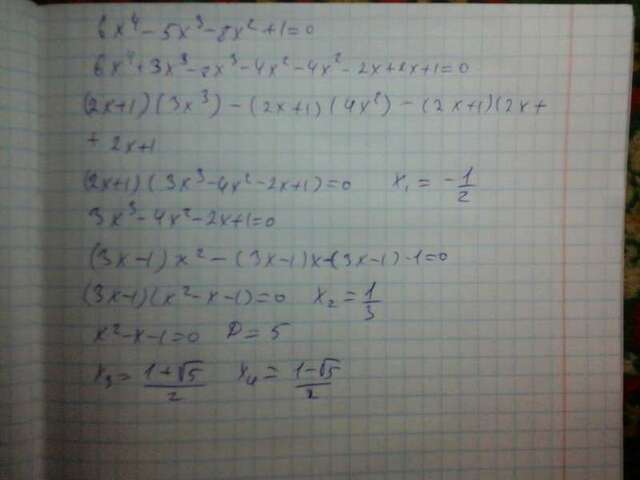 6x⁴-5x³-8x²+1=0
6x⁴+3x³-8x³-4x²-4x²-2x+2x+1=0
(2x+1)(3x³)-(2x+1)(4x²)-(2x+1)(2x+
+2x+1
(2x+1)(3x³-4x²-2x+1)=0 x₁=-1/2
3x³-4x²-2x+1=0
(3x-1)x²-(3x-1)x-(3x-1)·1=0
(3x-1)(x²-x-1)=0 x₂=1/3
x²-x-1=0 D=5
x₃=(1+√5)/2 x₄=(1-√5)/2